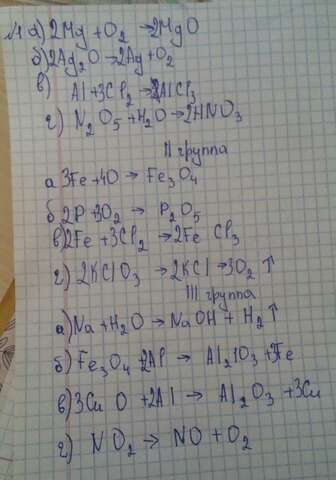 №1 а) 2Mg + O₂ → 2MgO
б) 2Ag₂O → 2Ag + O₂
в) Al + 3Cl₂ → 2AlCl₃
г) N₂O₅ + H₂O → 2HNO₃
II группа
а 3Fe + 4O → Fe₃O₄
б) 2P + 3O₂ → P₂O₅
в) 2Fe + 3Cl₂ → 2FeCl₃
г) 2KClO₃ → 2KCl + 3O₂ ↑
III группа
а) Na + H₂O → NaOH + H₂ ↑
б) Fe₃O₄ + 2Al → Al₂O₃ + Fe
в) 3CuO + 2Al → Al₂O₃ + 3Cu
г) NO₂ → NO + O₂